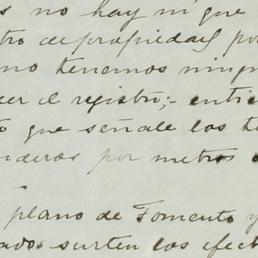 s no hay ni que
tro de propiedad, por
no tenemos ningu
cer el registro; - entie
o que señale los t
nderas por metros
plano de Fomento y
ados surten los efect